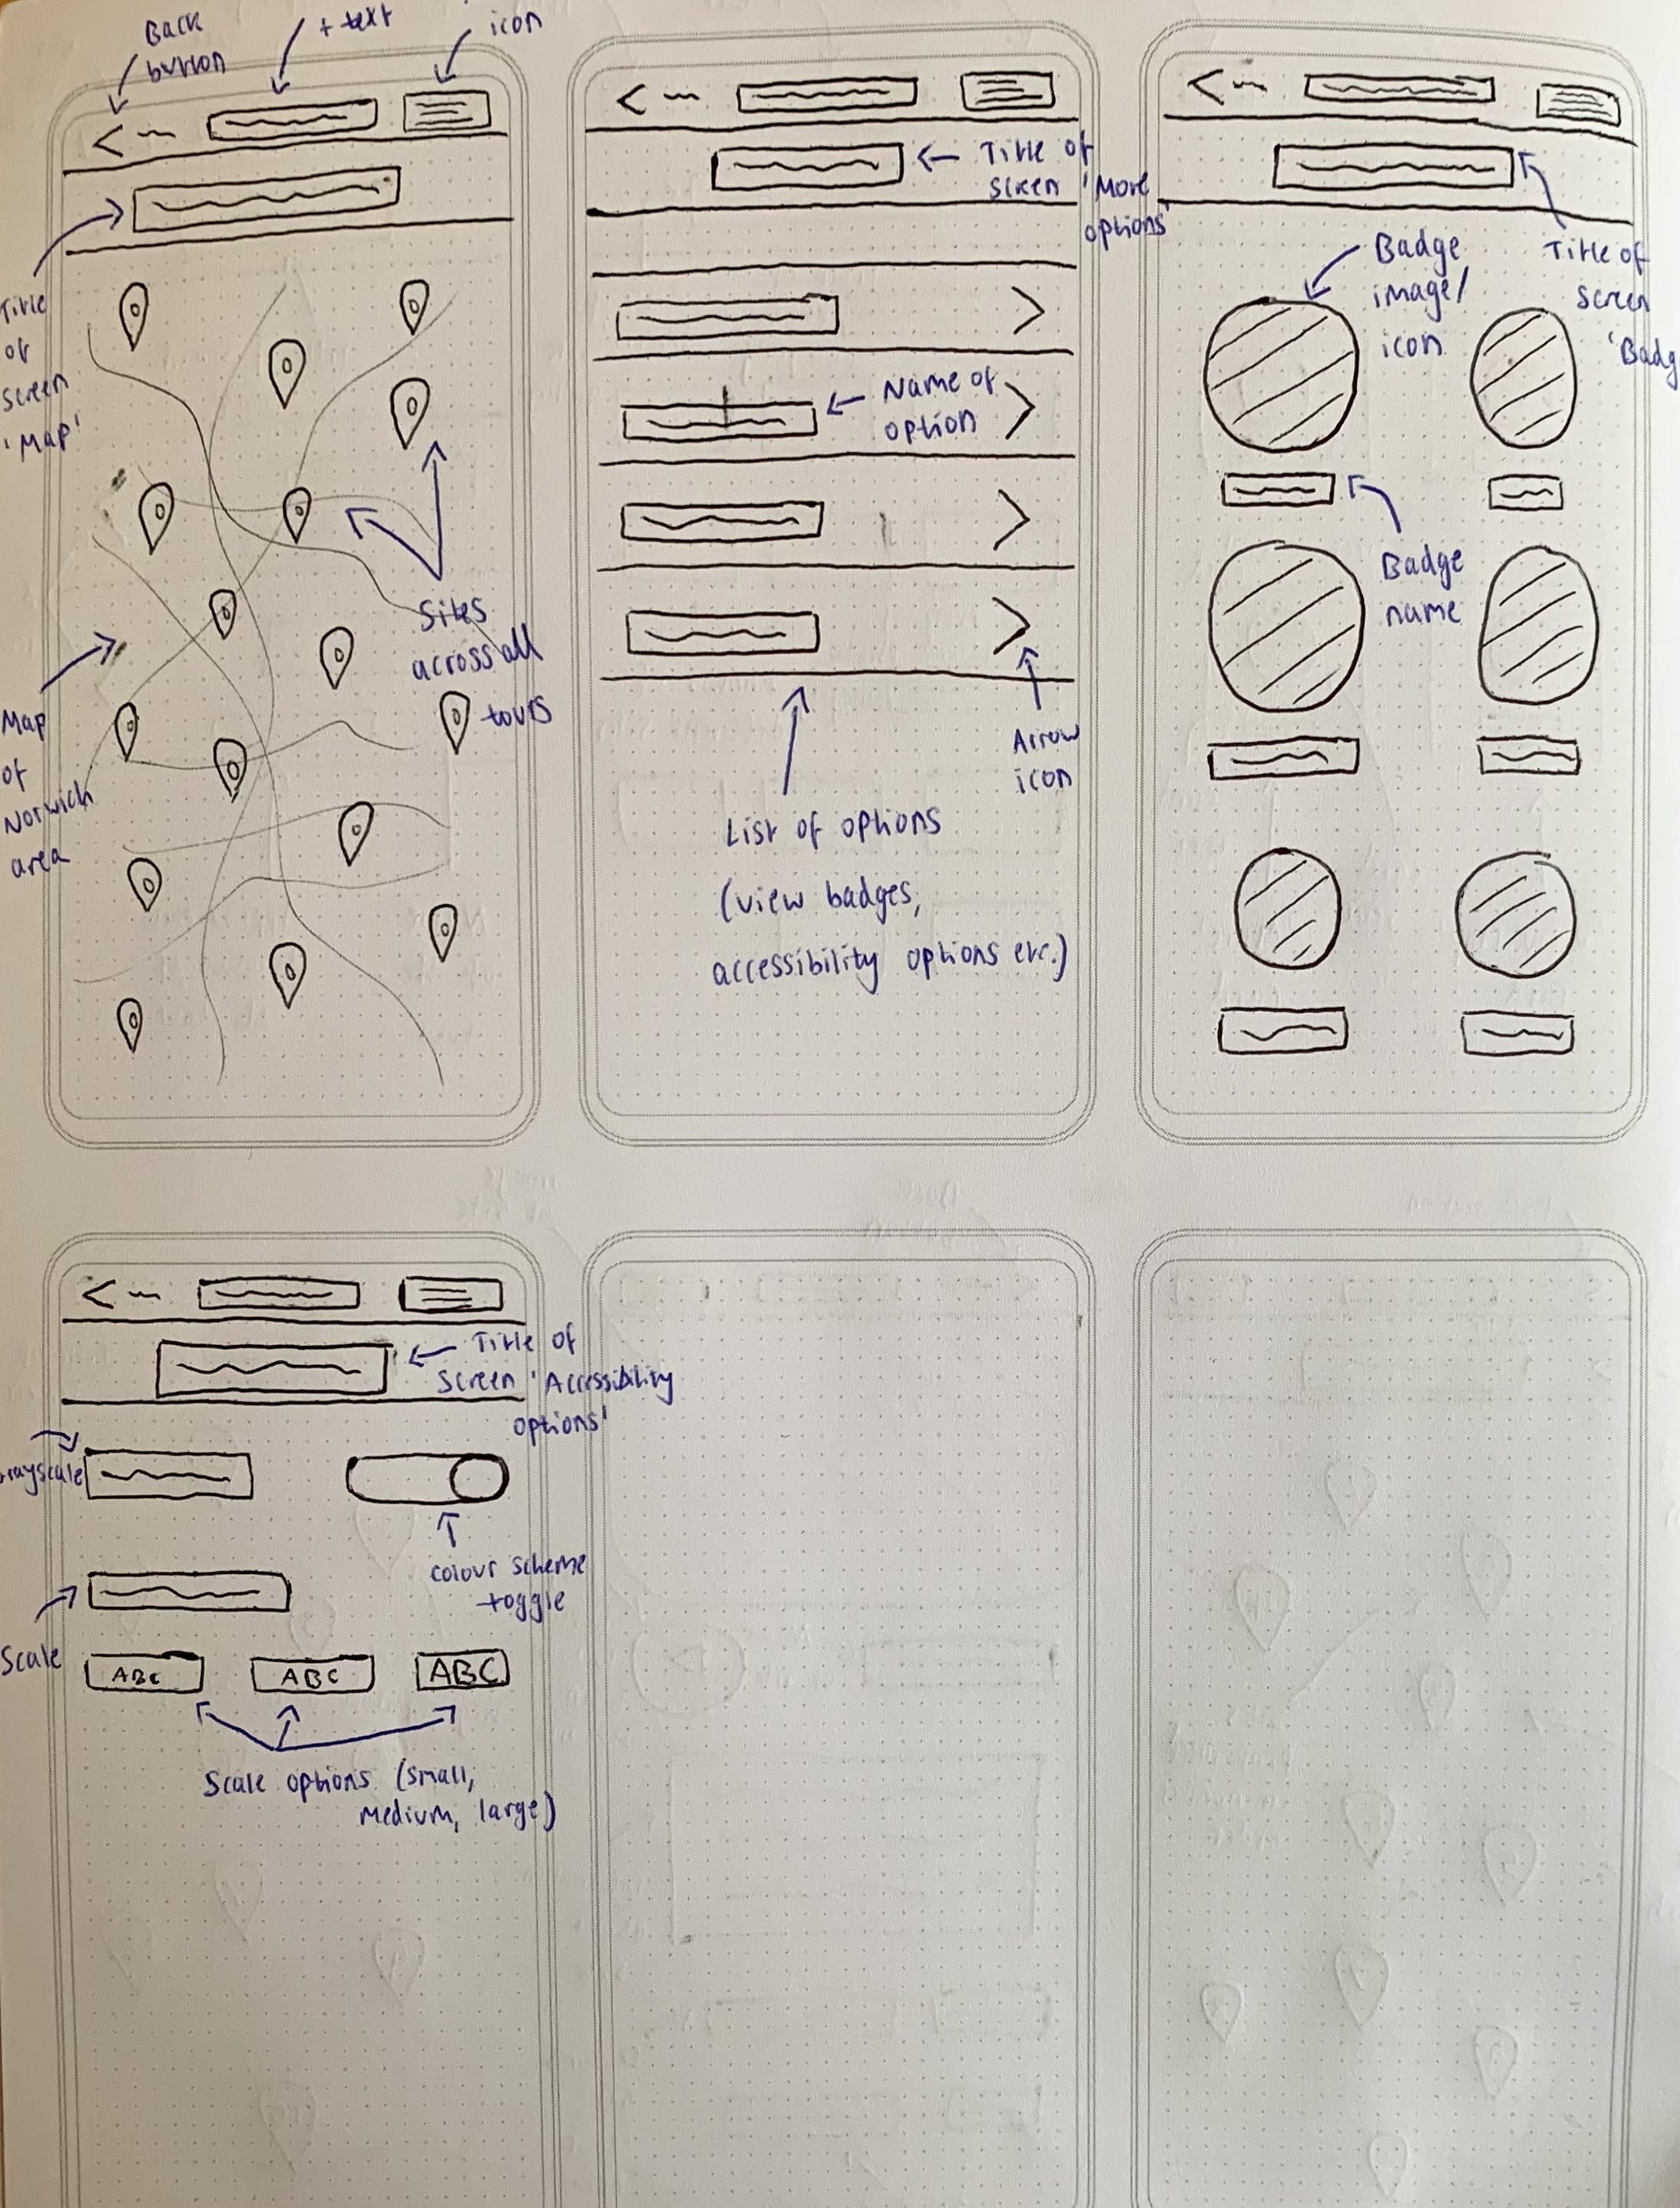 Back
button
+ text
icon
Title
of
screen
'Map'
Sites
across all
tours
Map
of
Norwich
area
Title of
screen 'More
options'
Name of
option
Arrow
icon
List of options
(view badges,
accessibility options etc.)
Badge
image/
icon
Title of
screen
'Badg
Badge
name
Title of
screen 'Accessibility
options'
rayscale
colour scheme
toggle
Scale
ABC
ABC
ABC
Scale options (small,
medium, large)